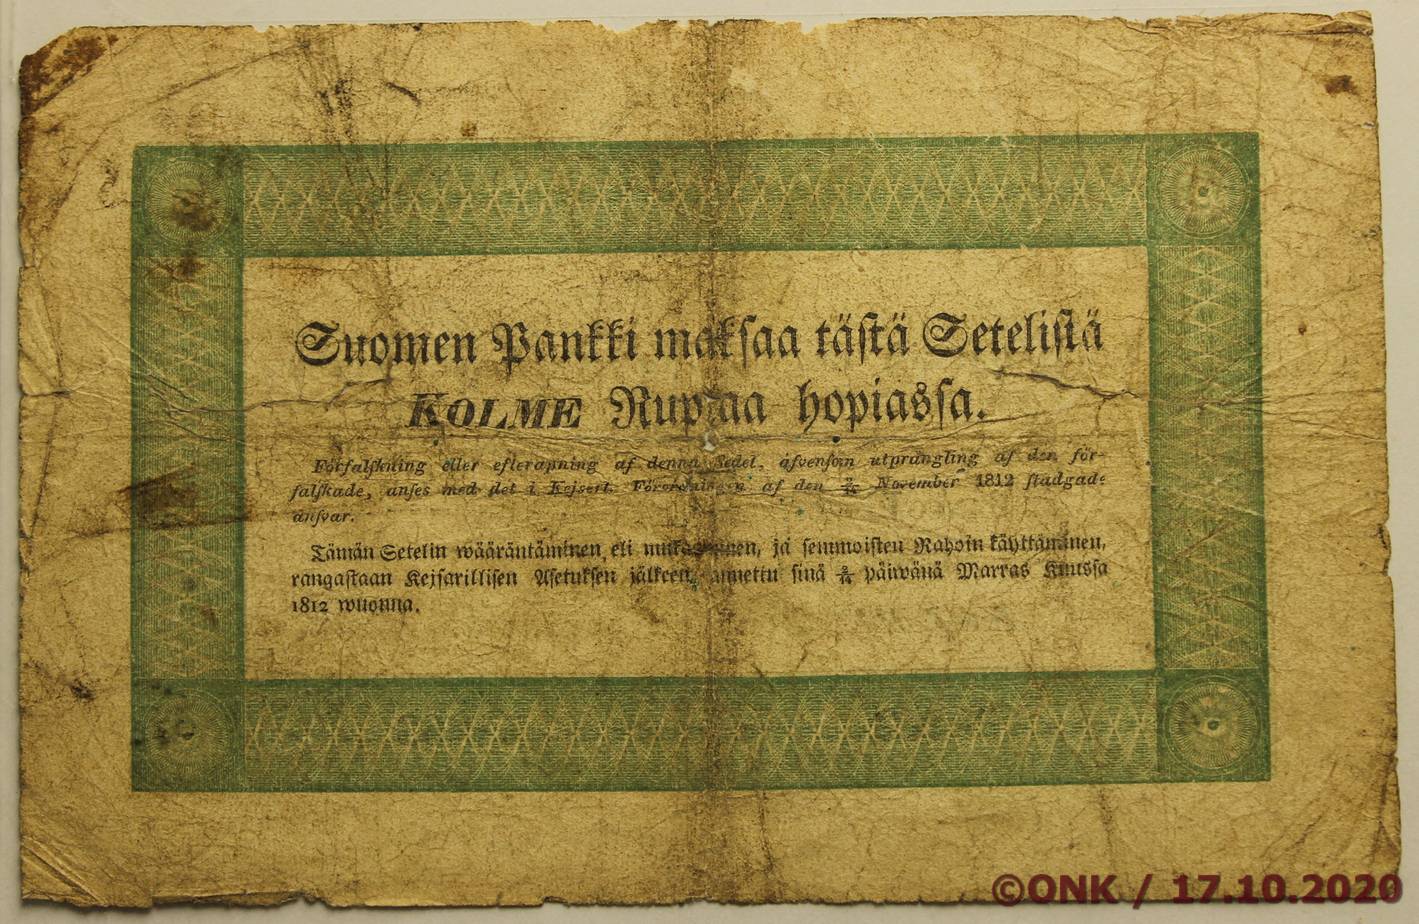 Suomen Pankki maksaa tästä Setelistä
KOLME Ruplaa hopiassa.
Förfalskning eller efterapning af denna Sedel, äfvensom utprångling af den för-
falskade, anses med det i Kejserl. Förordningen af den 2/14 November 1812 stadgade
ansvar.
Tämän Setelin wääräntäminen eli mukaaminen, ja semmoisten Rahoin käyttäminen,
rangastaan Kejsarillisen Asetuksen jälkeen, annettu sinä 2/14 päiwänä Marras Kuussa
1812 wuonna.
©ONK / 17.10.2020